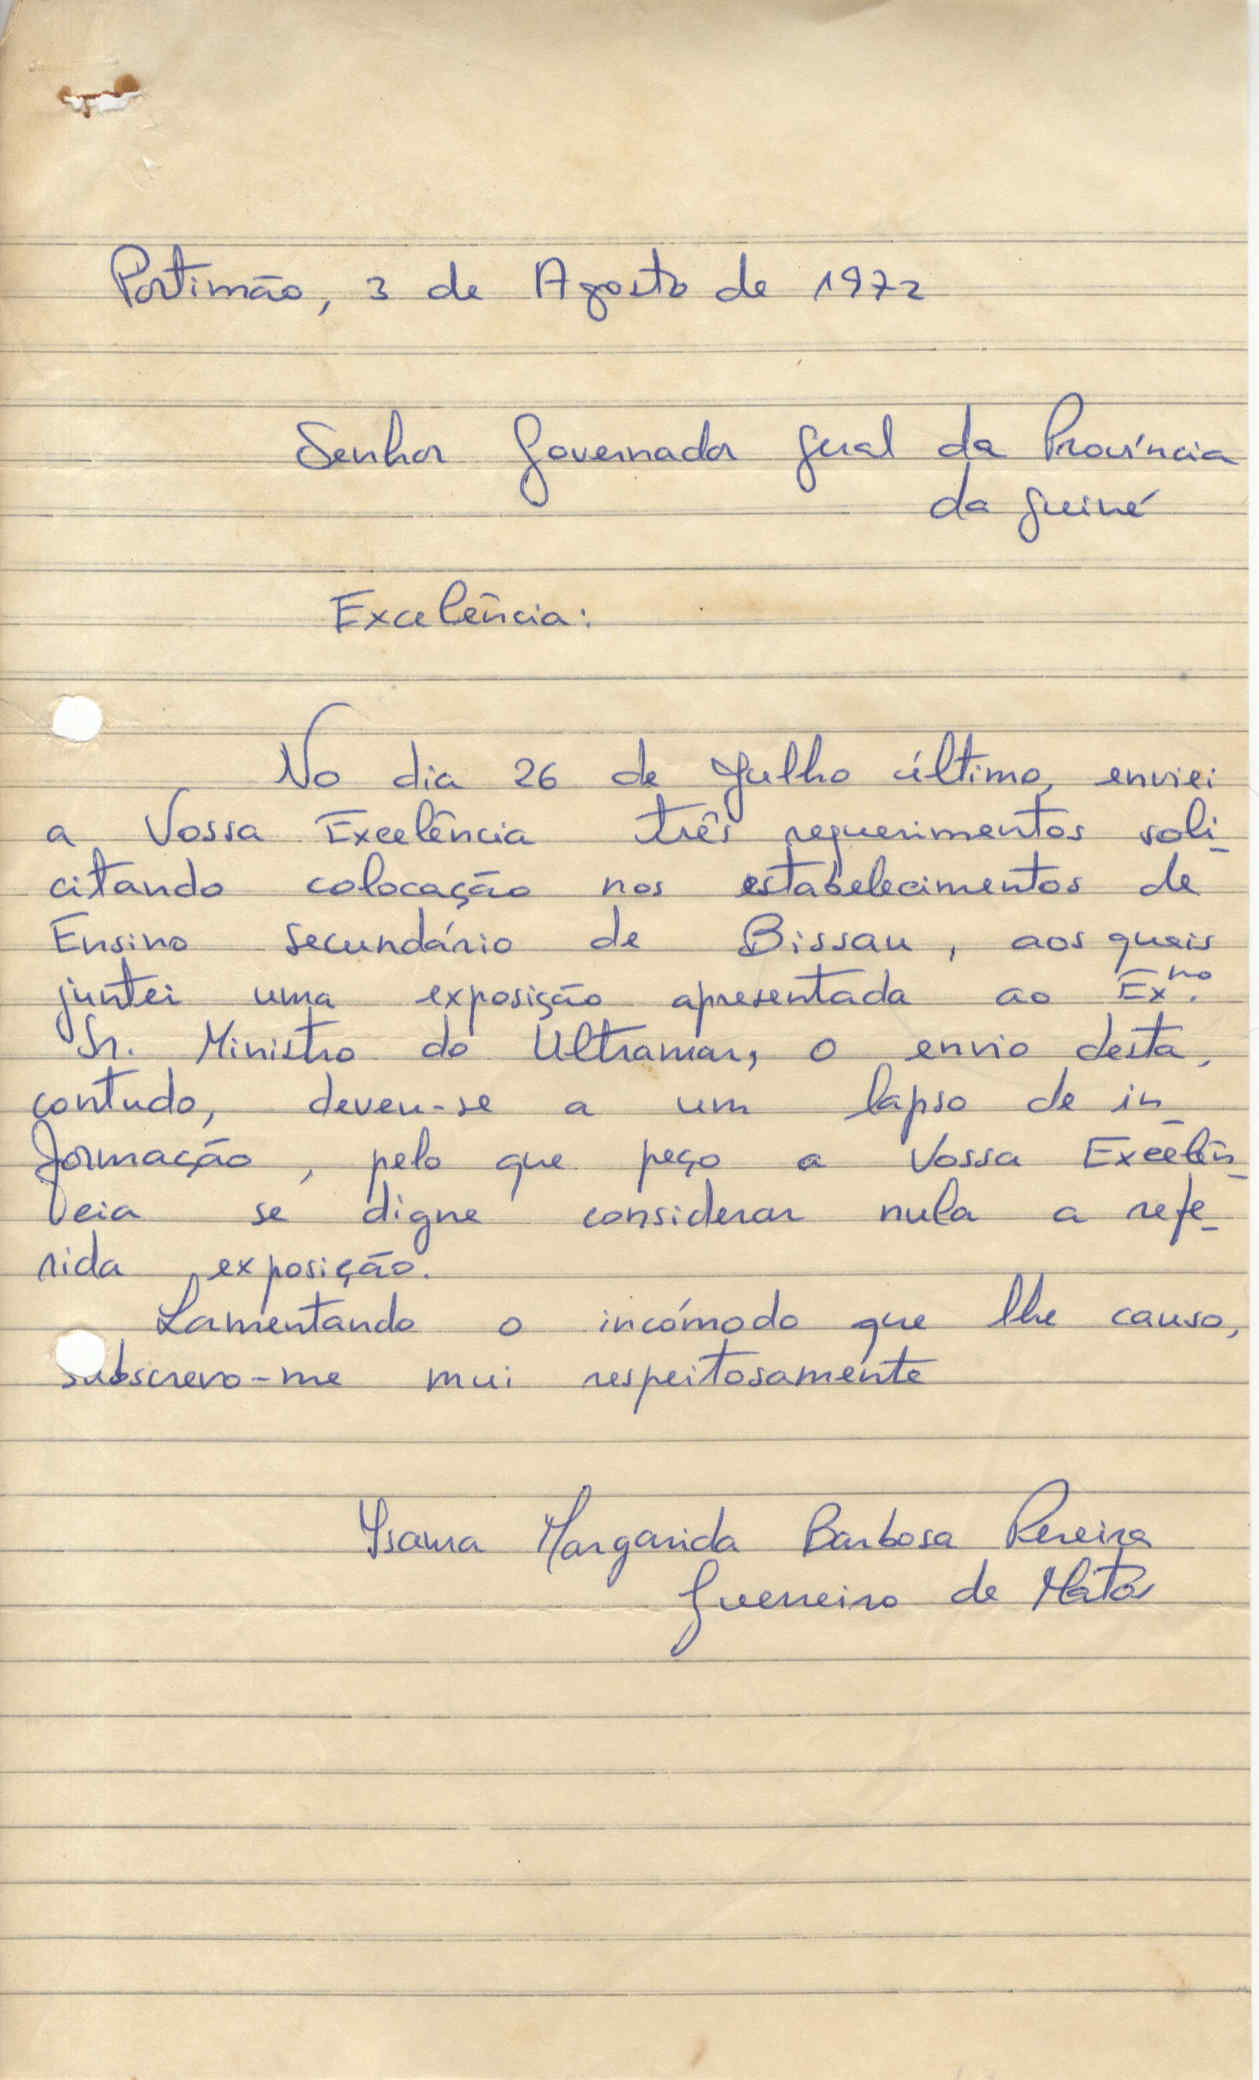 Portimão, 3 de Agosto de 1972
Senhor Governador Geral da Província
da Guiné
Excelência:
No dia 26 de Julho último, enviei
a Vossa Excelência três requerimentos soli-
citando colocação nos estabelecimentos de
Ensino Secundário de Bissau, aos quais
juntei uma exposição apresentada ao Exmo.
Sr. Ministro do Ultramar, o envio desta,
contudo, deveu-se a um lapso de in-
formação, pelo que peço a Vossa Excelên-
cia se digne considerar nula a refe-
rida exposição.
Lamentando o incómodo que lhe causo,
subscrevo-me mui respeitosamente
Isaura Margarida Barbosa Pereira
Guerreiro de Matos